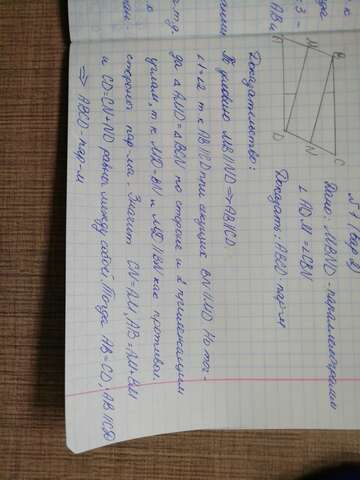 № 1 (вар 2)
Дано: MBND - параллелограмм
∠ADM = ∠CBN
Доказать: ABCD пар-м
A M B
D N C
Доказательство:
По условию MB || ND ⇒ AB || CD
∠1 = ∠2 т.к. AB || CD при секущих BN и MD. Но тог-
да △AMD = △BCN по стороне и 2 прилежащим
углам, т.к. MD = BN и MD || BN как противоп.
стороны пар-ма. Значит CN = AM, AB = AM + BM
и CD = CN + ND равны между собой. Тогда AB = CD; AB || CD
⇒ ABCD - пар-м